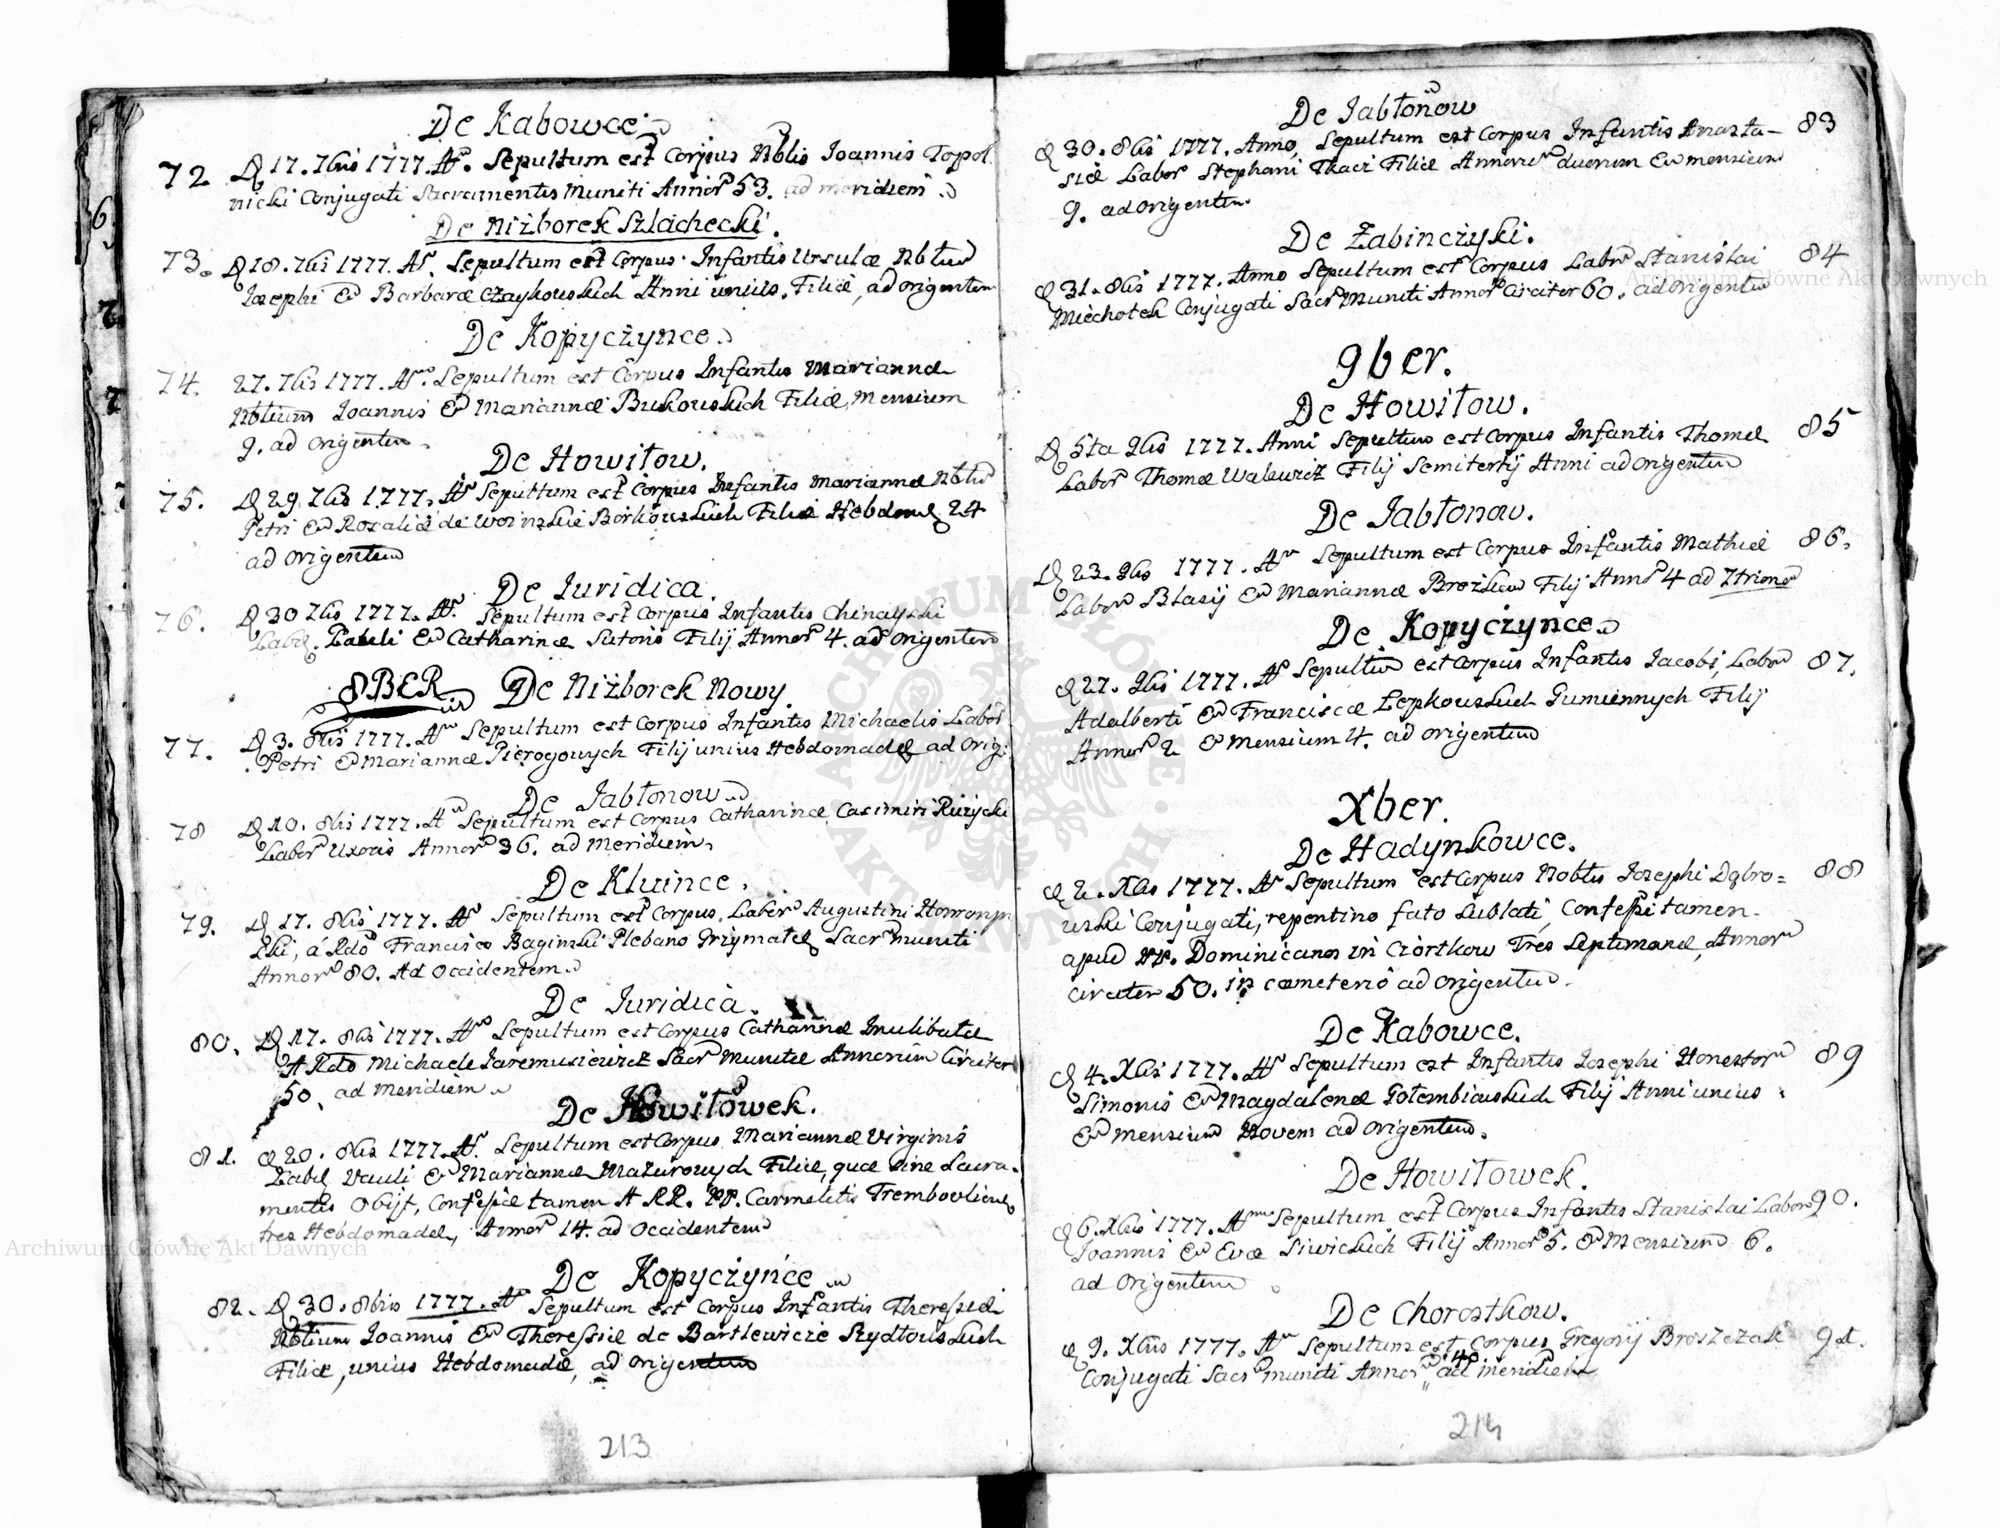 De Kabowce.
72 D 17. 7bris 1777. Ao. Sepultum est Corpus Nblis Joannis Topol
nicki Conjugati Sacramentis Muniti Annor 53. ad meridiem
De Niżborek Szlachecki.
73. D 18. 7bis 1777. Ao. Sepultum est Corpus Infantis Ursulæ Nbliū
Josephi & Barbaræ Czaykowskich Anni unius, Filiæ, ad origentem
De Kopyczynce.
74. 27. 7bis 1777. Ao. Sepultum est Corpus Infantis Mariannæ
Nbliūm Joannis & Mariannæ Bukowskich Filiæ, Mensium
9. ad origentem.
De Howiłow.
75. D 29 7bis 1777. Ao Sepultum est Corpus Infantis Mariannæ Nbliū
Petri & Rozaliæ de Borkowskich Filiæ Hebdom 24
ad origentem
De Juridica.
76. D 30 7bis 1777. Ao. Sepultum est Corpus Infantis
Labr. Pauli & Catharinæ Sutoris Filij Annor 4. ad origentem
8BER De Niżborek Nowy.
77. D 3. 8bis 1777. Ao Sepultum est Corpus Infantis Michaelis Labor
Petri & Mariannæ Pierogowych Filij unius Hebdomadæ ad orig:
De Jabłonow
78 D 10. 8bis 1777. Ao Sepultum est Corpus Catharinæ Casimiri Rużycki
Labor Uxoris Annor 36. ad meridiem.
De Kluince.
79. D 17. 8bis 1777. Ao Sepultum est Corpus Labor Augustini
ski, á Rdo Francisco Baginski Plebano Grzymałł Sacr muniti
Annor 80. Ad Occidentem.
De Juridica.
80. D 17. 8bis 1777. Ao Sepultum est Corpus Catharinæ
A Rdo Michaele Jaremusiewicz Sacr Munitæ Annorum Circiter
50. ad meridiem
De Howiłowek.
81. D 20. 8bis 1777. Ao. Sepultum est Corpus Mariannæ Virginis
Labor Pauli & Mariannæ Mazurowych Filiæ, quæ sine Sacra-
mentis Obijt, Confessæ tamen A RR. PP. Carmelitis Trembovliens
tres Hebdomadæ, Annor 14. ad Occidentem
De Kopyczyńce
82. D 30. 8bris 1777. Ao Sepultum est Corpus Infantis Theressiæ
Nbliūm Joannis & Theressiæ de Bartlewicze Szydłowskich
Filiæ, unius Hebdomadæ, ad origentem
213
De Jabłonow
D 30. 8bis 1777. Anno, Sepultum est Corpus Infantis Anasta- 83
siæ Labor Stephani Tkacz Filiæ Annorum duorum & mensium
9. ad origentem
De Żabinczyki.
D 31. 8bis 1777. Anno Sepultum est Corpus Labor Stanislai 84
Miechotek Conjugati Sacr Muniti Annor Circiter 60. ad origentem
9ber.
De Howiłow.
D 5ta 9bis 1777. Anni Sepultum est Corpus Infantis Thomæ 85
Labor Thomæ Walewicz Filij Semitertij Anni ad origentem
De Jabłonow.
D 23. 9bis 1777. Ao Sepultum est Corpus Infantis Mathiæ 86.
Labor Blasij & Mariannæ Filij Annor 4 ad 7trionem
De Kopyczynce
D 27. 9bis 1777. Ao Sepultum est Corpus Infantis Jacobi, Labor 87.
Adalberti & Franciscæ Zepkowskich Gumiennych Filij
Annor 2 & Mensium 4. ad origentem
Xber.
De Hadynkowce.
D 2. Xbis 1777. Ao Sepultum est Corpus Nobłis Josephi Dąbro= 88
wski Conjugati, repentino fato sublati, Confessi tamen
apud PP. Dominicanos in Czortkow Tres Septimanæ, Annor
circiter 50. in cæmeterio ad origentem.
De Kabowce.
D 4. Xbis 1777. Ao Sepultum est Infantis Josephi Honestor 89
Simonis & Magdalenæ Gołembiowskich Filij Anni unius
& mensium Novem ad origentem.
De Howiłowek.
D 6. Xbis 1777. Anno Sepultum est Corpus Infantis Stanislai Labor 90.
Joannis & Evæ Siwickich Filij Annor 5. & Mensium 6.
ad origentem
De Chorostkow.
D 9. Xbris 1777. Ao Sepultum est Corpus Gregorij Broszczak 91.
Conjugati Sacr muniti Annor 40 ad meridiem
214
Archiwum Główne Akt Dawnych
Archiwum Główne Akt Dawnych
ARCHIWUM GŁÓWNE AKT DAWNYCH